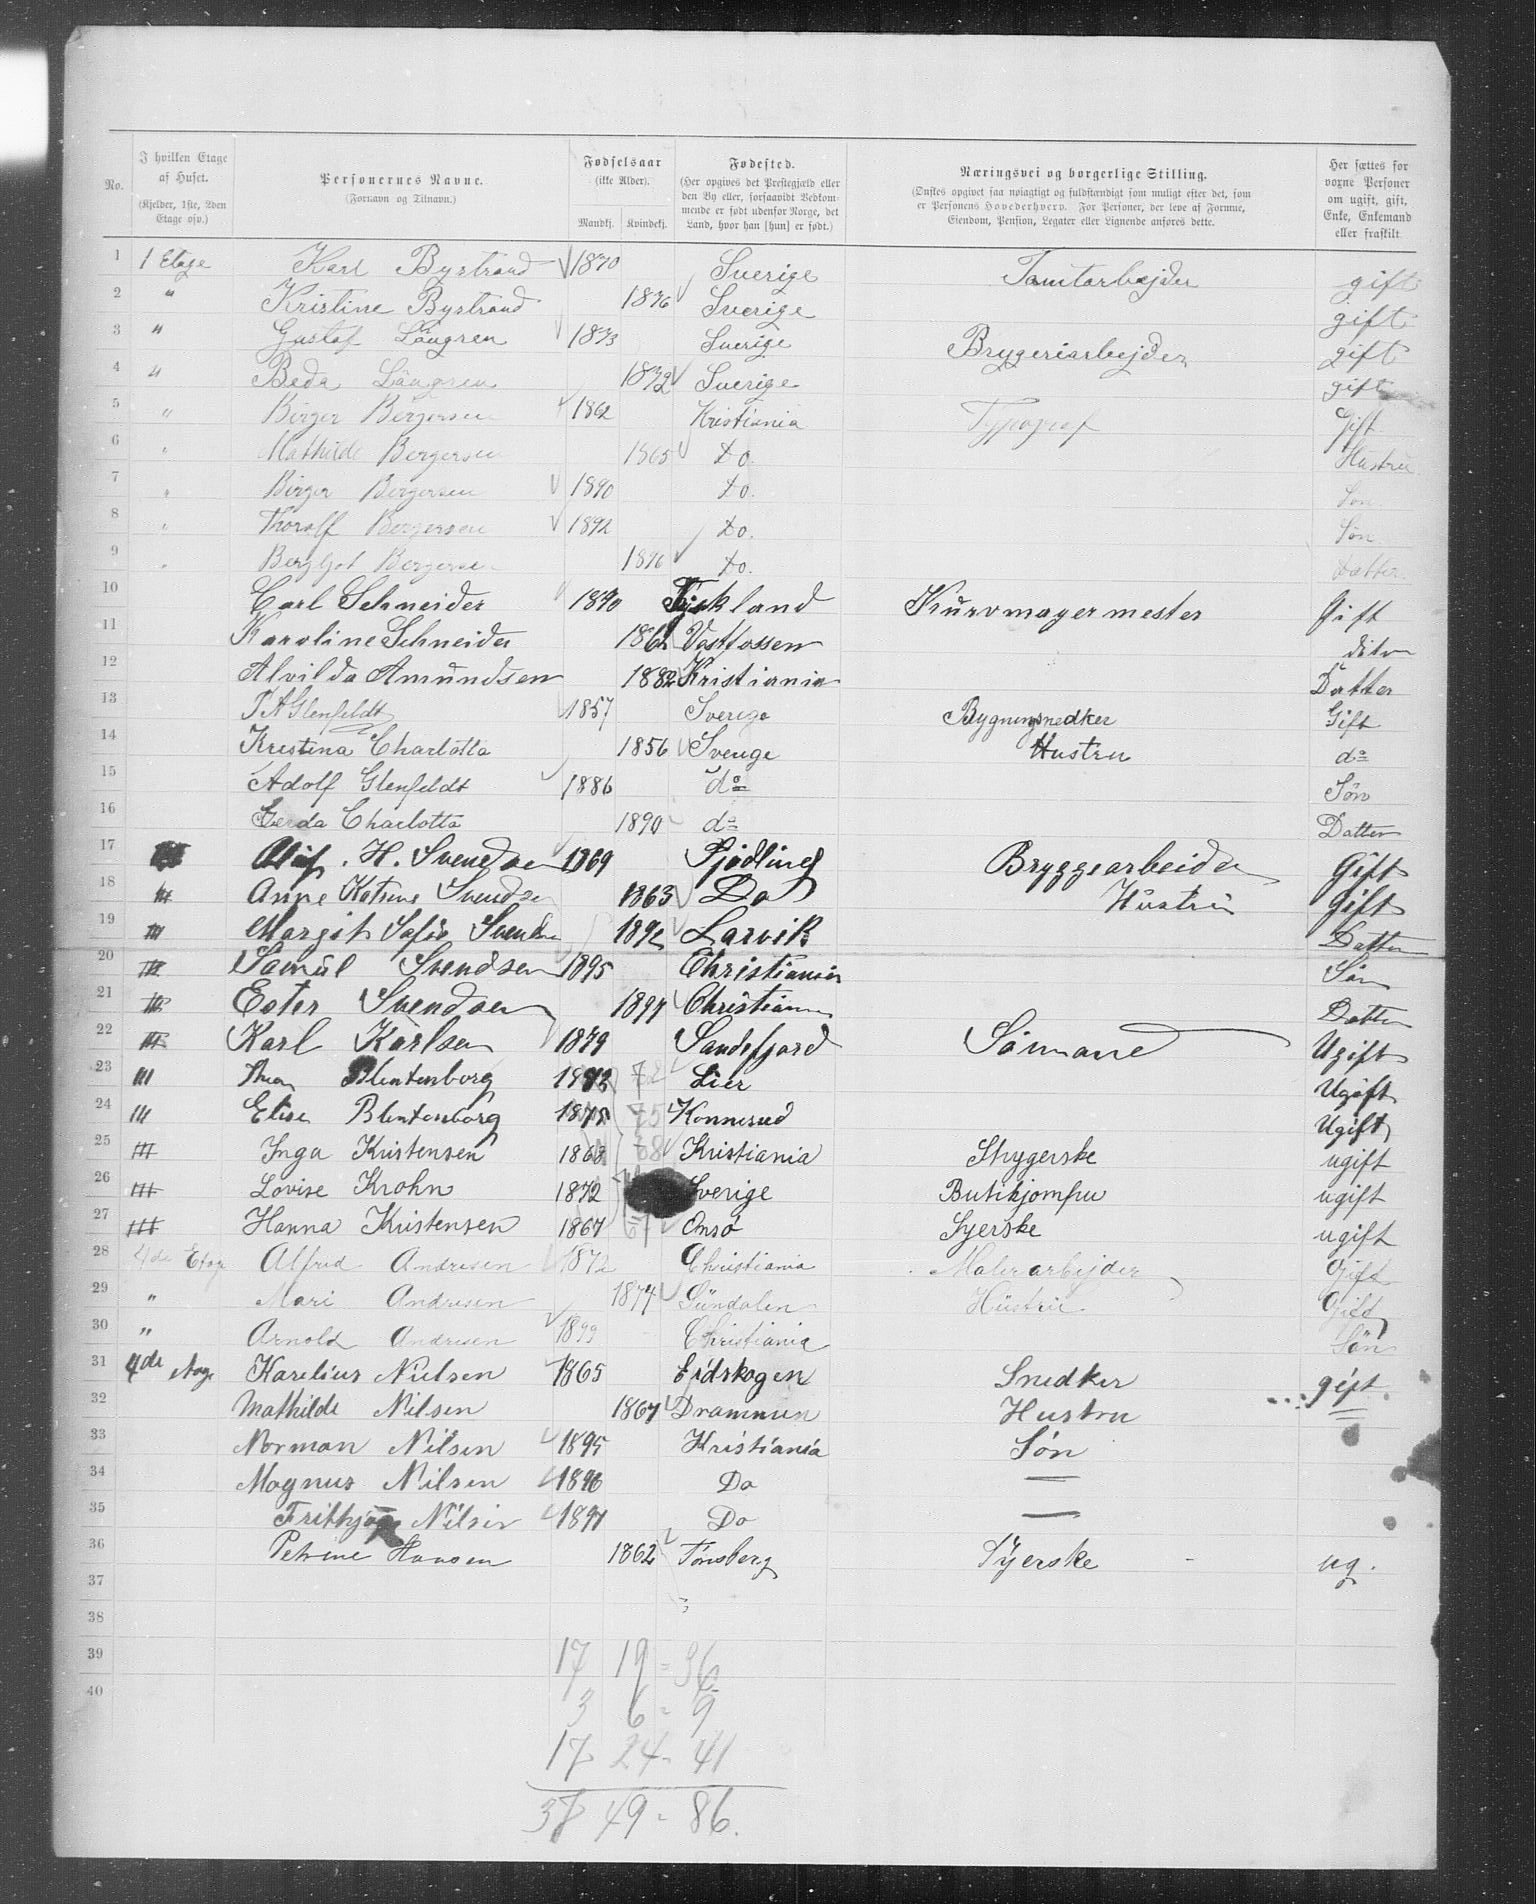 No. | I hvilken Etage af Huset. (Kjelder, 1ste, 2den Etage osv.) | Personernes Navne. (Fornavn og Tilnavn.) | Fødselsaar (ikke Alder). Mandkj. Kvindekj. | Fødested. (Her opgives det Prestegjæld eller den By eller, forsaavidt Vedkommende er født udenfor Norge, det Land, hvor han [hun] er født.) | Næringsvei og borgerlige Stilling. (Ønskes opgivet saa nøiagtigt og fuldstændigt som muligt efter det, som er Personens Hovederhverv. For Personer, der leve af Formue, Eiendom, Pension, Legater eller Lignende anføres dette. | Her sættes for voxne Personer om ugift, gift, Enke, Enkemand eller fraskilt.
1 1 Etage Karl Bystrand 1870 Sverige gift
2 " Kristine Bystrand 1876 Sverige gift
3 " Gustaf Lövgren 1873 Sverige Bryggeriarbejder gift
4 " Beda Lövgren 1872 Sverige gift
5 " Birger Bergersen 1862 Kristiania Typograf Gift
6 " Mathilde Bergersen 1865 Do. Hustru
7 " Birger Bergersen 1890 Do. Søn
8 " Thorolf Bergersen 1892 Do. Søn
9 " Bergljot Bergersen 1896 Do. Datter
10 Carl Schneider 1840 Tyskland Kurvmagermester Gift
11 Karoline Schneider 1862 Vestfossen dito
12 Alvilda Amundsen 1882 Kristiania Datter
13 Glenfeldt 1857 Sverige Bygningsnedker Gift
14 Kristina Charlotta 1856 Sverige Hustru do
15 Adolf Glenfeldt 1886 do Søn
16 Gerda Charlotta 1890 do Datter
17 H. Svendsen 1869 Fjødling Bryggearbeider Gift
18 III Anne Katrine Svendsen 1863 Do Hustru Gift
19 III Margit Sofie Svendsen 1892 Larvik Datter
20 III Samuel Svendsen 1895 Christiania Søn
21 III Ester Svendsen 1897 Christiania Datter
22 III Karl Karlsen 1879 Sandefjord Sømand Ugift
23 III Thea Blentenborg 1872 72 Lier Ugift
24 III Elise Blentenborg 1875 75 Konnerud Ugift
25 III Inga Kristensen 1868 68 Kristiania Strygerske ugift
26 III Lovise Krohn 1872 Sverige Butikjomfru ugift
27 III Hanna Kristensen 1867 67 Onsø Syerske ugift
28 4de Etage Alfred Andresen 1872 Christiania Malerarbejder Gift
29 " Mari Andresen 1874 Sundalen Hustru Gift
30 " Arnold Andresen 1899 Christiania Søn
31 4de Etage Karelius Nielsen 1865 Eidskogen Snedker gift
32 Mathilde Nilsen 1867 Drammen Hustru
33 Norman Nilsen 1895 Kristiania Søn
34 Magnus Nilsen 1896 Do —
35 Frithjof Nilsen 1897 Do —
36 Petrine Hansen 1862 Tønsberg Syerske ug.
37
38
39 17 19 = 36
40 3 6 = 9
17 24 - 41
37 49 = 86.